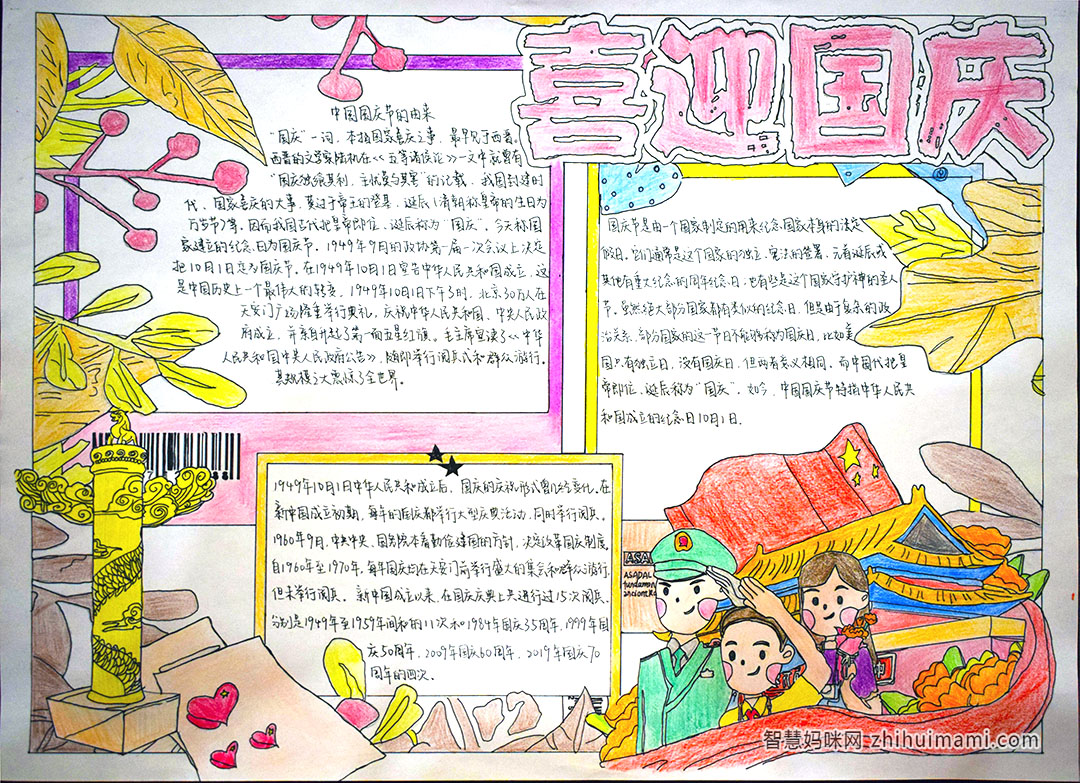 喜迎国庆
中国国庆节的由来
"国庆"一词，本指国家喜庆之事，最早见于西晋。
西晋的文学家陆机在《五等诸侯论》一文中就曾有
"国庆独飨其利，主忧莫与其害"的记载，我国封建时
代、国家喜庆的大事，莫过于帝王的登基、诞辰（清朝称皇帝的生日为
万岁节）等，因而我国古代把皇帝即位、诞辰称为"国庆"。今天称国
家建立的纪念日为国庆节，1949年9月的政协第一届一次会议上决定
把10月1日定为国庆节。在1949年10月1日宣告中华人民共和国成立，这
是中国历史上一个最伟大的转变，1949年10月1日下午3时，北京30万人在
天安门广场隆重举行典礼，庆祝中华人民共和国，中央人民政
府成立，并亲自升起了第一面五星红旗。毛主席宣读了《中华
人民共和国中央人民政府公告》，随即举行阅兵式和群众游行。
其规模之大震惊了全世界。
国庆节是由一个国家制定的用来纪念国家本身的法定
假日。它们通常是这个国家的独立、宪法的签署、元首诞辰或
其他有重大纪念的周年纪念日，也有些是这个国家守护神的圣人
节，虽然绝大部分国家都有类似的纪念日，但是由于复杂的政
治关系，部分国家的这一节日不能够称为国庆日，比如美
国只有独立日，没有国庆日，但两者意义相同。而中国代把皇
帝即位、诞辰称为"国庆"。如今，中国国庆节特指中华人民共
和国成立的纪念日10月1日。
1949年10月1日中华人民共和成立后，国庆的庆祝形式曾几经变化。在
新中国成立初期，每年的国庆都举行大型庆典活动，同时举行阅兵。
1960年9月，中共中央、国务院本着勤俭建国的方针，决定改革国庆制度。
自1960年至1970年，每年国庆均在天安门前举行盛大的集会和群众游行，
但未举行阅兵。新中国成立以来，在国庆庆典上共进行过15次阅兵，
分别是1949年至1959年间和的11次和1984年国庆35周年、1999年国
庆50周年、2009年国庆60周年、2019年国庆70
周年的四次。
ASA
ASADAL
fundamen
智慧妈咪网 zhihuimami.com